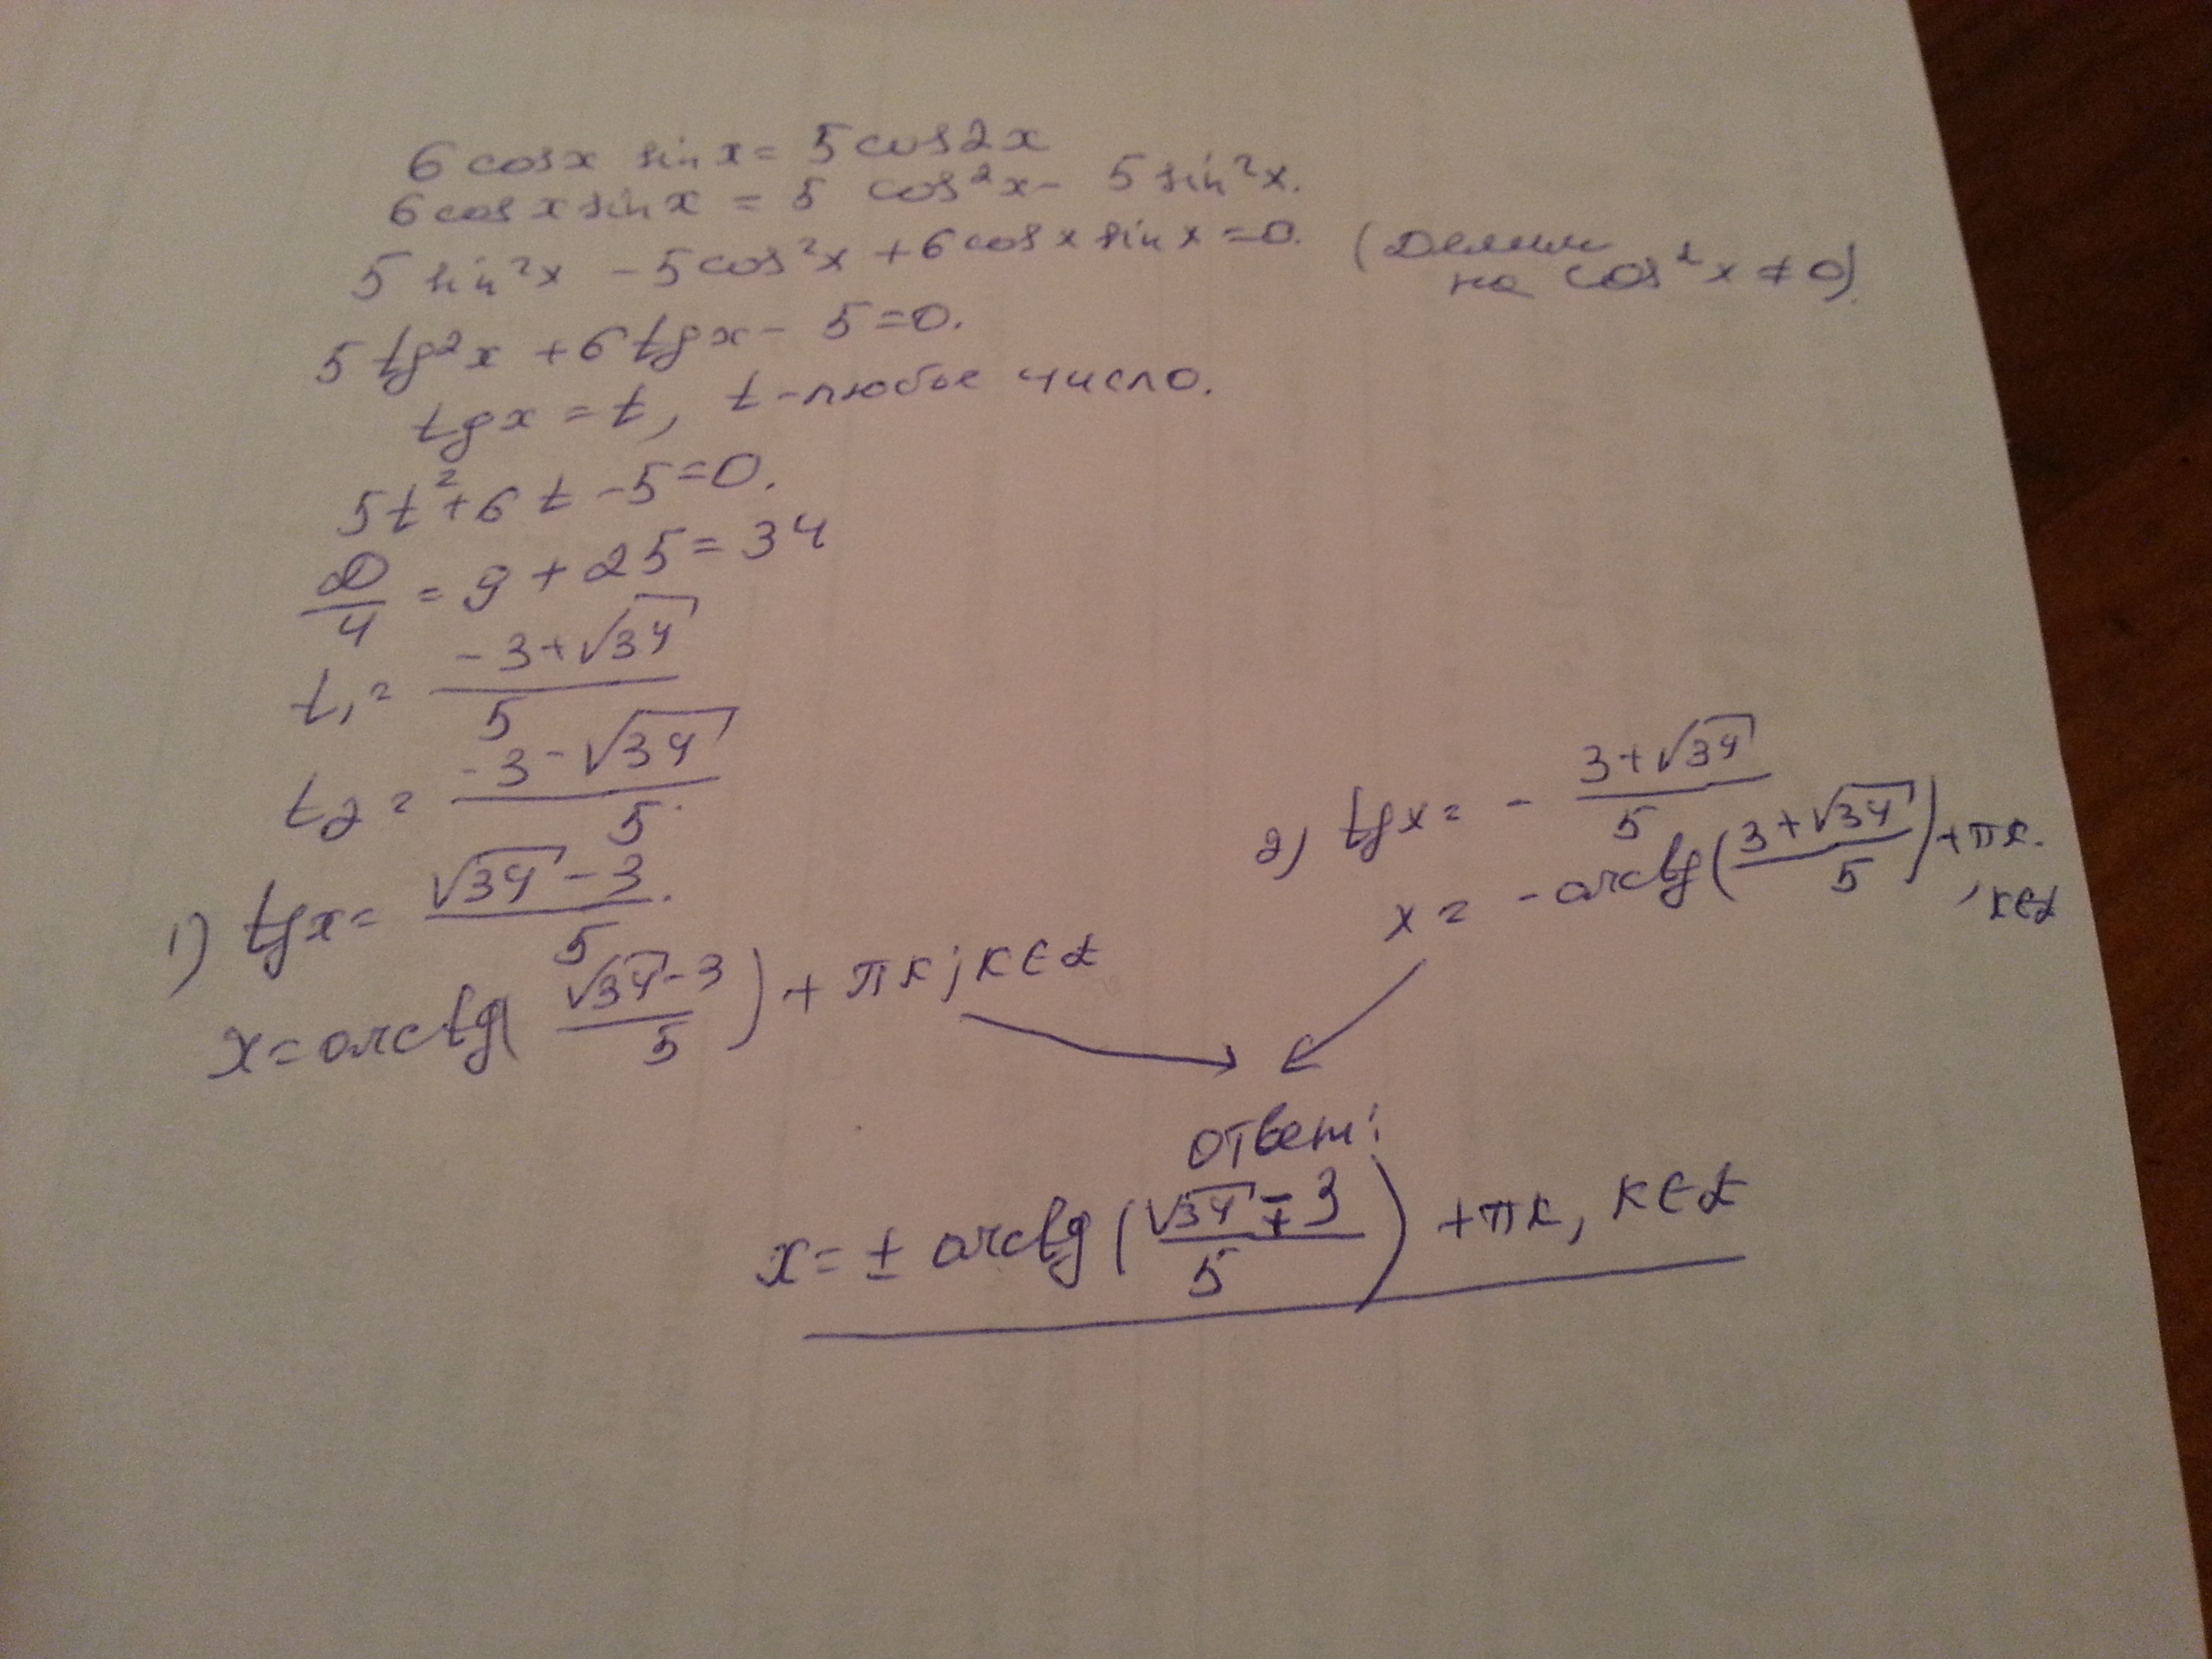 6 cos x sin x = 5 cos 2x
6 cos x sin x = 5 cos²x - 5 sin²x.
5 sin²x - 5 cos²x + 6 cos x sin x = 0. (Делим
на cos²x ≠ 0)
5 tg²x + 6 tg x - 5 = 0.
tg x = t, t - любое число.
5t² + 6t - 5 = 0.
D/4 = 9 + 25 = 34
t₁ = (-3 + √34)/5
t₂ = (-3 - √34)/5.
1) tg x = (√34 - 3)/5.
x = arctg((√34 - 3)/5) + πк; к ∈ Z
2) tg x = - (3 + √34)/5
x = - arctg((3 + √34)/5) + πк.
, к ∈ Z
ответ:
x = ± arctg((√34 ∓ 3)/5) + πк, к ∈ Z